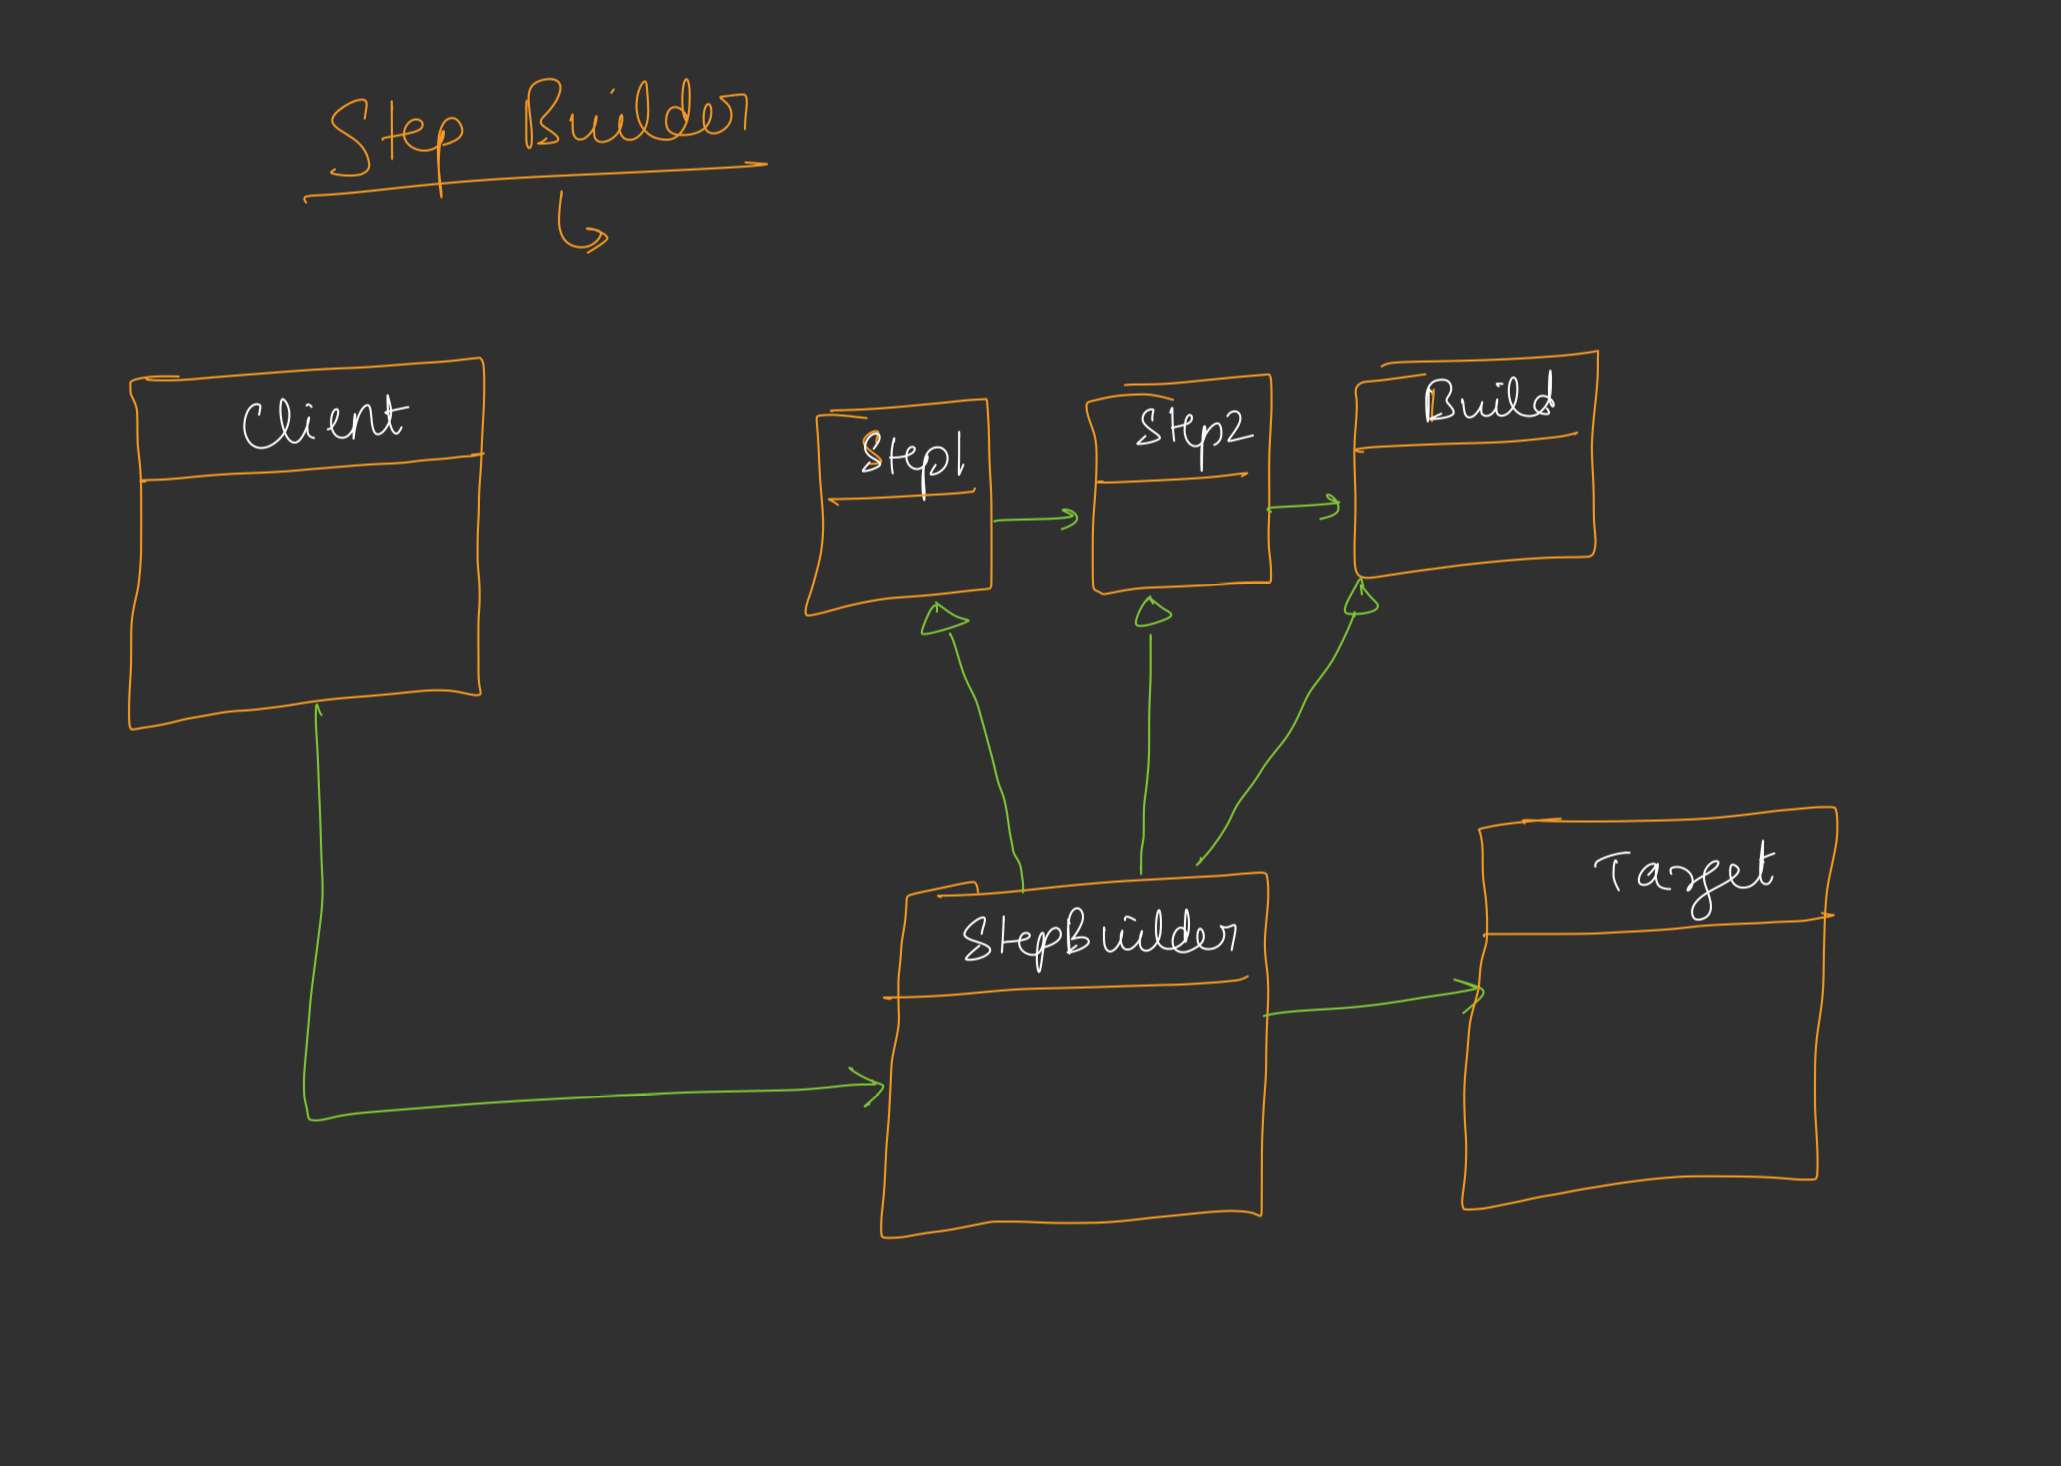 Step Builder
Client
Step1
Step2
Build
StepBuilder
Target